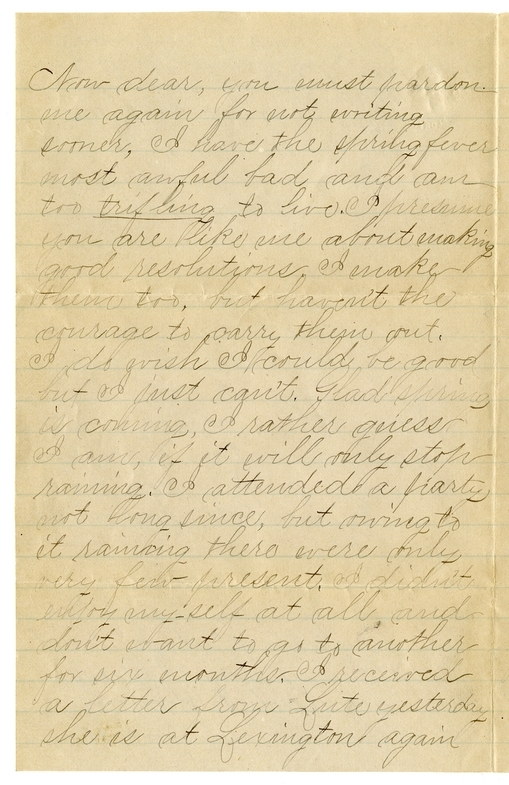 Now dear, you must pardon
me again for not writing
sooner, I have the spring fever
most awful bad and am
too trifling to live. I presume
you are like me about making
good resolutions. I make
them too, but haven't the
courage to carry them out.
I do wish I could be good
but I just can't. Glad spring
is coming, I rather guess
I am, if it will only stop
raining. I attended a party
not long since, but owing to
it raining there were only
very few present. I didn't
enjoy my-self at all and
don't want to go to another
for six months. I received
a letter from Lute yesterday
she is at Lexington again